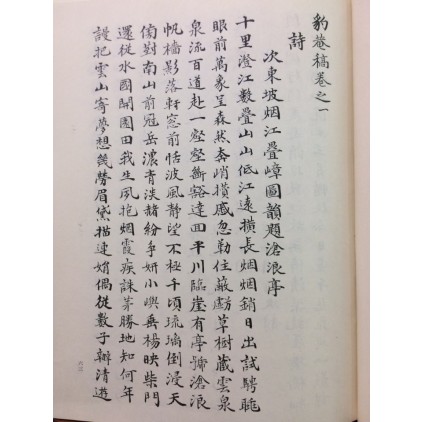 豹菴稿卷之一
詩
次東坡烟江疊嶂圖韻題滄浪亭
十里澄江數疊山山低江遠橫長烟烟銷日出試騁眺
眼前萬象呈森然奔峭攢忽勒住蔽虧草樹藏雲泉
泉流百道赴一壑壑斷豁達回平川臨崖有亭號滄浪
帆檣影落軒窓前恬波風靜望不極千頃琉璃倒浸天
對南山前冠岳濃青淡赭紛爭妍小嶼垂楊映柴門
還從水國開園田我生夙抱烟霞疾誅茅勝地知何年
謾把雲山寄夢想幾勞眉黛描連娟偶從數子辦清遊